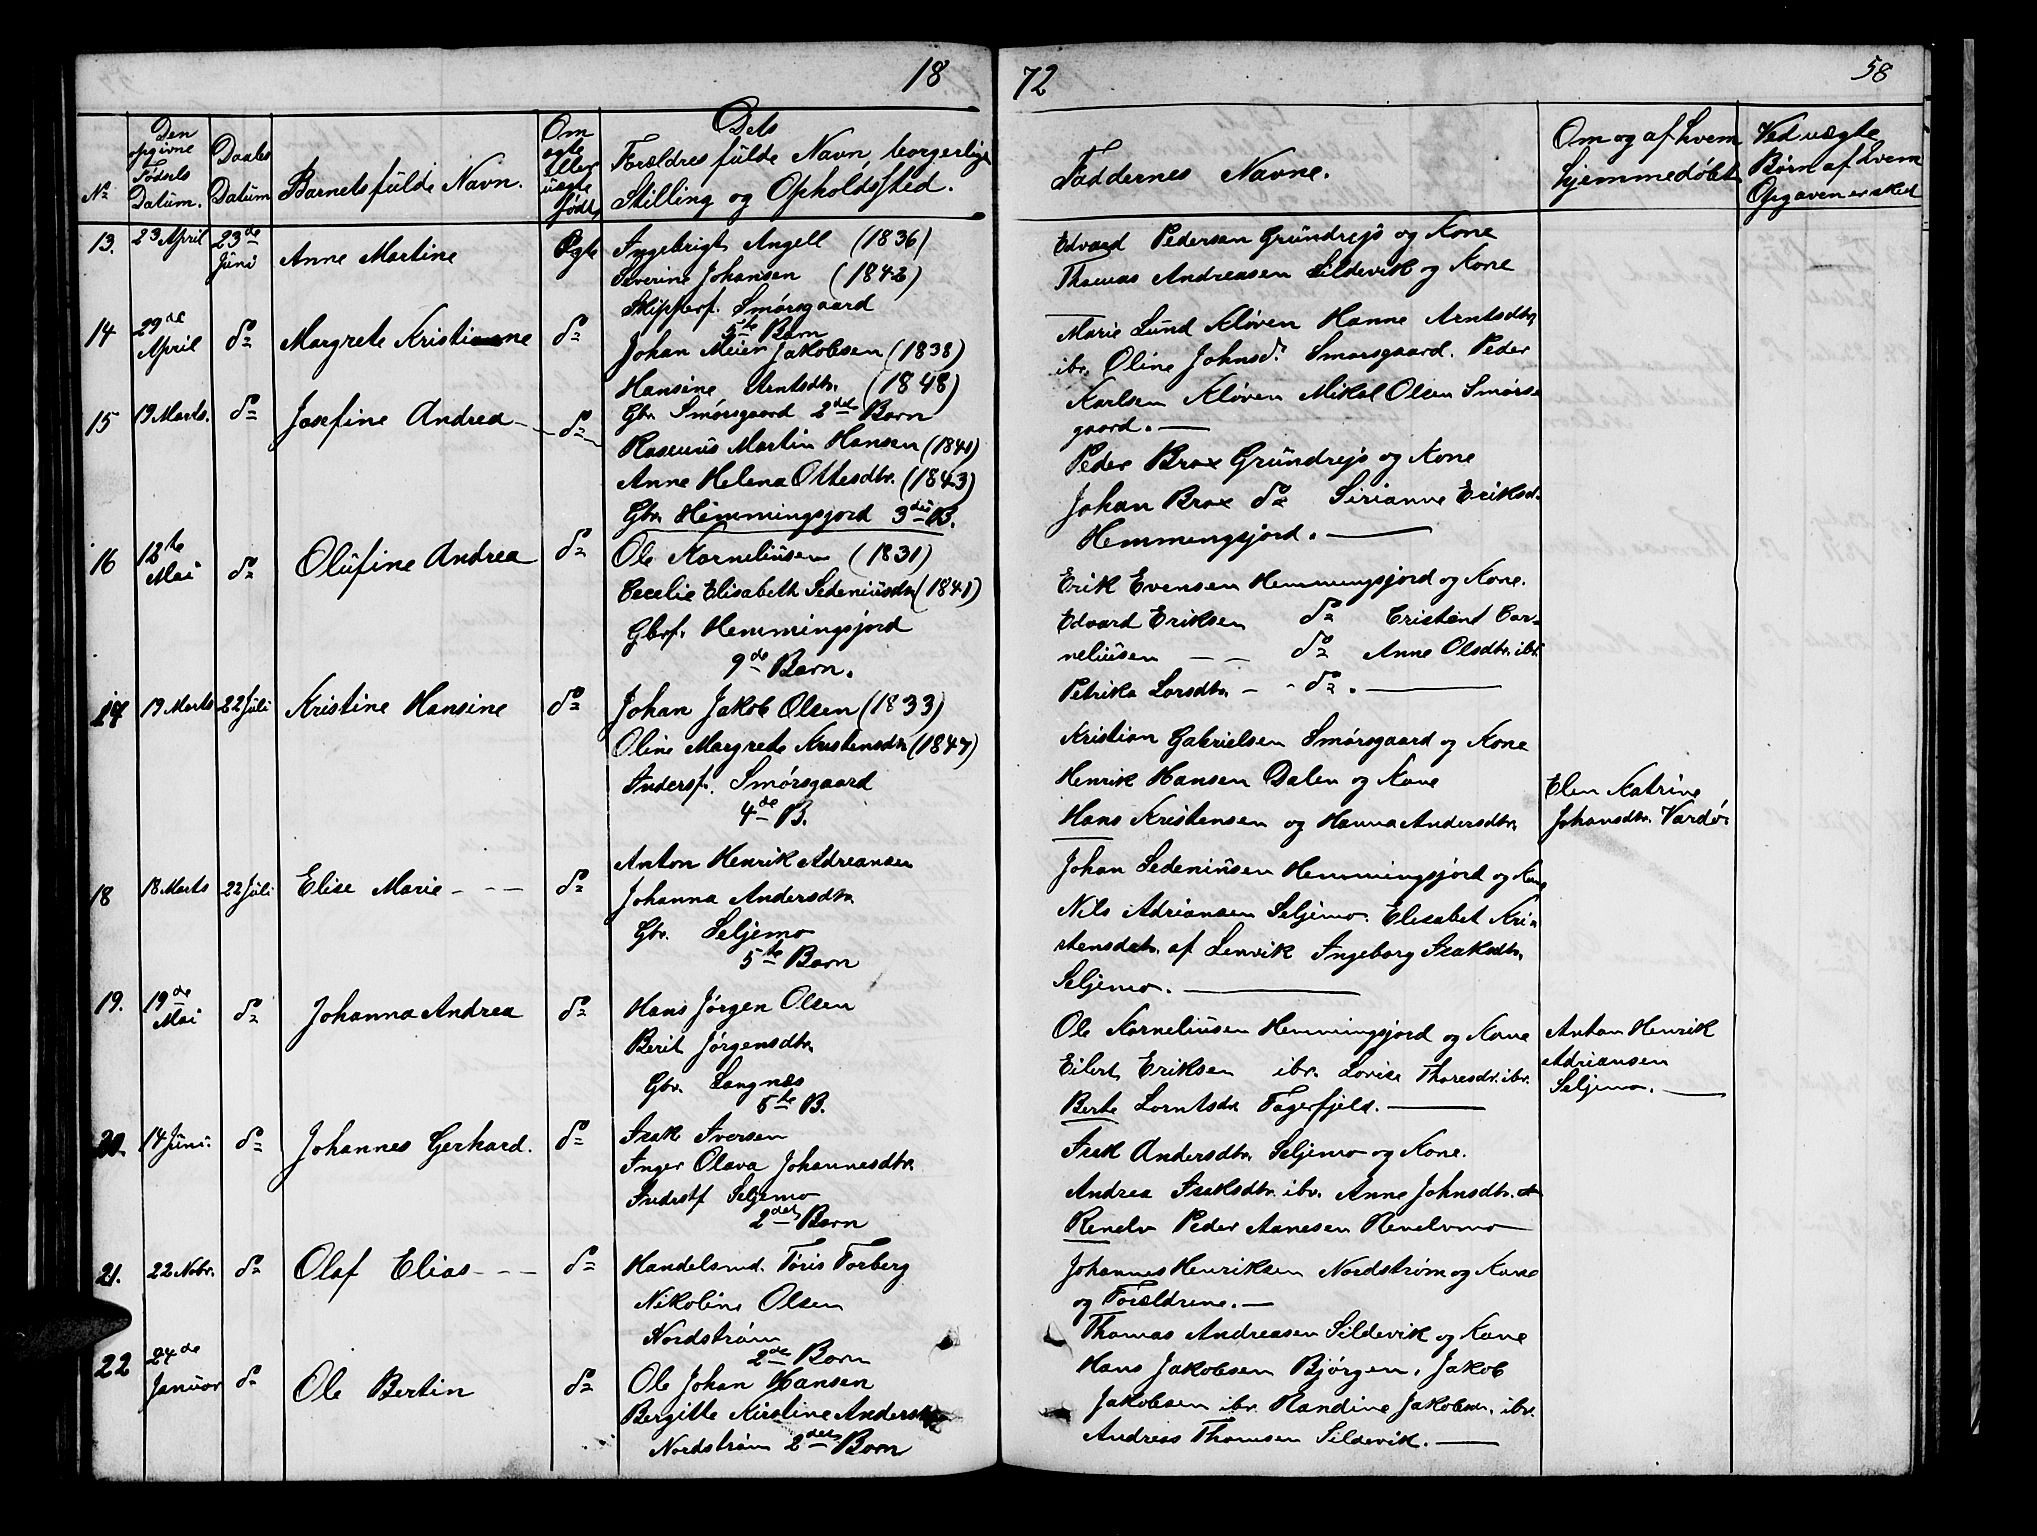 18
72
58
Nº
Den opgivne Fødsels Datum.
Daabs Datum
Barnets fulde Navn.
Om ægte eller uægte født
Dets Forældres fulde Navn, borgerlige Stilling og Opholdssted.
Faddernes Navne.
Om og af hvem hjemmedøbt
Ved uægte Børn af hvem Opgaven er sket
13. 23 April 23de Juni Anne Martine Ægte
Ingebrigt Angell (1836)
Severine Johansen (1842)
Skipperf. Smørsgaard
5te Barn
Edvard Pedersen Grundrejs og Kone
Thomas Andreasen Sildevik og Kone
14 29de April do Margrete Kristianne do
Johan Meier Jakobsen (1838)
Hansine Arntsdtr. (1848)
Gbr. Smørsgaard 2det Barn
Marie Lund Kløven Hanne Arntsdtr
ibr. Oline Johnsd. Smørsgaard. Peder
Karlsen Kløven Mikal Olsen Smørs-
gaard. —
15 19 Marts. do Josefine Andrea do
Rasmus Martin Hansen (1841)
Anne Helena Ottesdtr. (1843)
Gbr. Hemmingsjord 3die B.
Peder Brox Grundrejs og Kone
Johan Brox do Sirianne Eriksd.
Hemmingsjord. —
16 12te Mai do Olufine Andrea do
Ole Korneliusen (1831)
Cecelie Elisabeth Sedeniusdtr (1841)
Gbrf. Hemmingsjord
9de Barn.
Erik Evensen Hemmingsjord og Kone.
Edvard Eriksen do Cristend Cor-
neliusen — — do Anne Olsdtr. ibr.
Petrika Larsdtr. - - do. —
17 19 Marts 22 Juli Kristine Hansine do
Johan Jakob Olsen (1833)
Oline Margrete Kristensdtr (1847)
Indersf. Smørsgaard
4de B.
Kristian Gabrielsen Smørsgaard og Kone
Henrik Hansen Dalen og Kone
Hans Kristensen og Hanna Andersdtr.
Elen Katrine
Johansdtr. Vardø.
18 18 Marts 22 Juli Elise Marie - - - do
Anton Henrik Adreansen
Johanna Andersdtr.
Gbr. Seljemo
5te Barn
Johan Sedeniusen Hemmingsjord og Kone
Nils Adriansen Seljemo. Elisabet Kri-
stensdatr. af Lenvik Ingeborg Isaksdtr.
Seljemo. —
19. 19de Mai do Johanna Andrea do
Hans Jørgen Olsen
Berit Jørgensdtr.
Gbr. Langnes
5te B.
Ole Korneliusen Hemmingsjord og Kone
Eilert Eriksen ibr. Lovise Thoresdtr. ibr.
Berte Lorntsdtr Fagerfjeld. —
Anton Henrik
Adriansen
Seljemo. —
20. 14 Juni. do Johannes Gerhard. do
Isak Iversen
Inger Olava Johannesdtr.
Inderstf Seljemo
2det Barn
Isak Andersdtr. Seljemo og Kone.
Andrea Isaksdtr. ibr. Anne Johnsdtr.
Renelv Peder Aanesen Renelvmo
21. 22 Nobr. do Olaf Elias - - - do
Handelsmd. Tøris Torberg
Nikoline Olsen
Nordstrøm
2de Barn
Johannes Henriksen Nordstrøm og Kone
og Forældrene. —
22 24de Januar do Ole Bertin do
Ole Johan Hansen
Bergitte Kirstine Andersdtr
Nordstrøm 2det Barn
Thomas Andreasen Sildevik og Kone
Hans Jakobsen Bjørgen, Jakob
Jakobsen ibr. Randine Jakobsdr. ibr.
Andreas Thomsen Sildevik. —